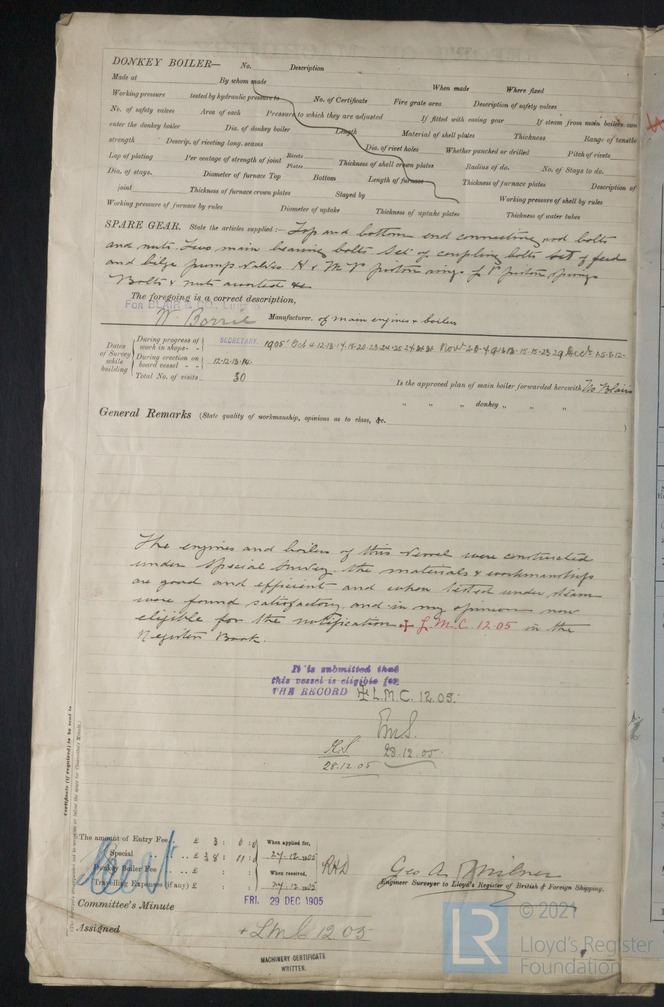 DONKEY BOILER— No. Description
Made at By whom made When made Where fixed
Working pressure tested by hydraulic pressure to No. of Certificate Fire grate area Description of safety valves
No. of safety valves Area of each Pressure to which they are adjusted If fitted with easing gear If steam from main boilers can
enter the donkey boiler Dia. of donkey boiler Length Material of shell plates Thickness Range of tensile
strength Descrip. of riveting long. seams Dia. of rivet holes Whether punched or drilled Pitch of rivets
Lap of plating Per centage of strength of joint Rivets Plates Thickness of shell crown plates Radius of do. No. of Stays to do.
Dia. of stays. Diameter of furnace Top Bottom Length of furnace Thickness of furnace plates Description of
joint Thickness of furnace crown plates Stayed by Working pressure of shell by rules
Working pressure of furnace by rules Diameter of uptake Thickness of uptake plates Thickness of water tubes
SPARE GEAR. State the articles supplied:— Top and bottom end connecting rod bolts
and nuts. Two main bearing bolts Set of coupling bolts Set of feed
and bilge pump valves H & M.P. piston rings L.P. piston springs
Bolts & nuts assorted &c
The foregoing is a correct description,
FOR BLAIR & CO., LIMITED
W Borrie Manufacturer. of main engines & boilers
SECRETARY.
Dates of Survey while building
During progress of work in shops- - 1905 Oct 4.12.13.14.15.20.23.24.25.27
During erection on board vessel - - 12.12.13.14.
Total No. of visits 30
Is the approved plan of main boiler forwarded herewith Blairs
" " " donkey " " "
General Remarks (State quality of workmanship, opinions as to class, &c.
The engines and boilers of this vessel were constructed
under Special Survey the materials & workmanship
are good and efficient and when tested under steam
were found satisfactory and in my opinion now
eligible for the notification ✠ L.M.C. 12.05 in the
Register Book.
It is submitted that
this vessel is eligible for
THE RECORD ✠ L.M.C. 12.05.
28.12.05
28.12.05
Certificate (if required) to be sent to
The amount of Entry Fee £ 3 : 0 : 0 When applied for,
Special £ 38 : 11 : 0 27.12.1905
Donkey Boiler Fee £ : : When received,
Travelling Expenses (if any) £ : : 27.12.1905
Geo A. Milner
Engineer Surveyor to Lloyd's Register of British & Foreign Shipping.
Committee's Minute FRI. 29 DEC 1905
Assigned + LMC 12.05
MACHINERY CERTIFICATE
WRITTEN.
LR
© 2021
Lloyd's Register
Foundation